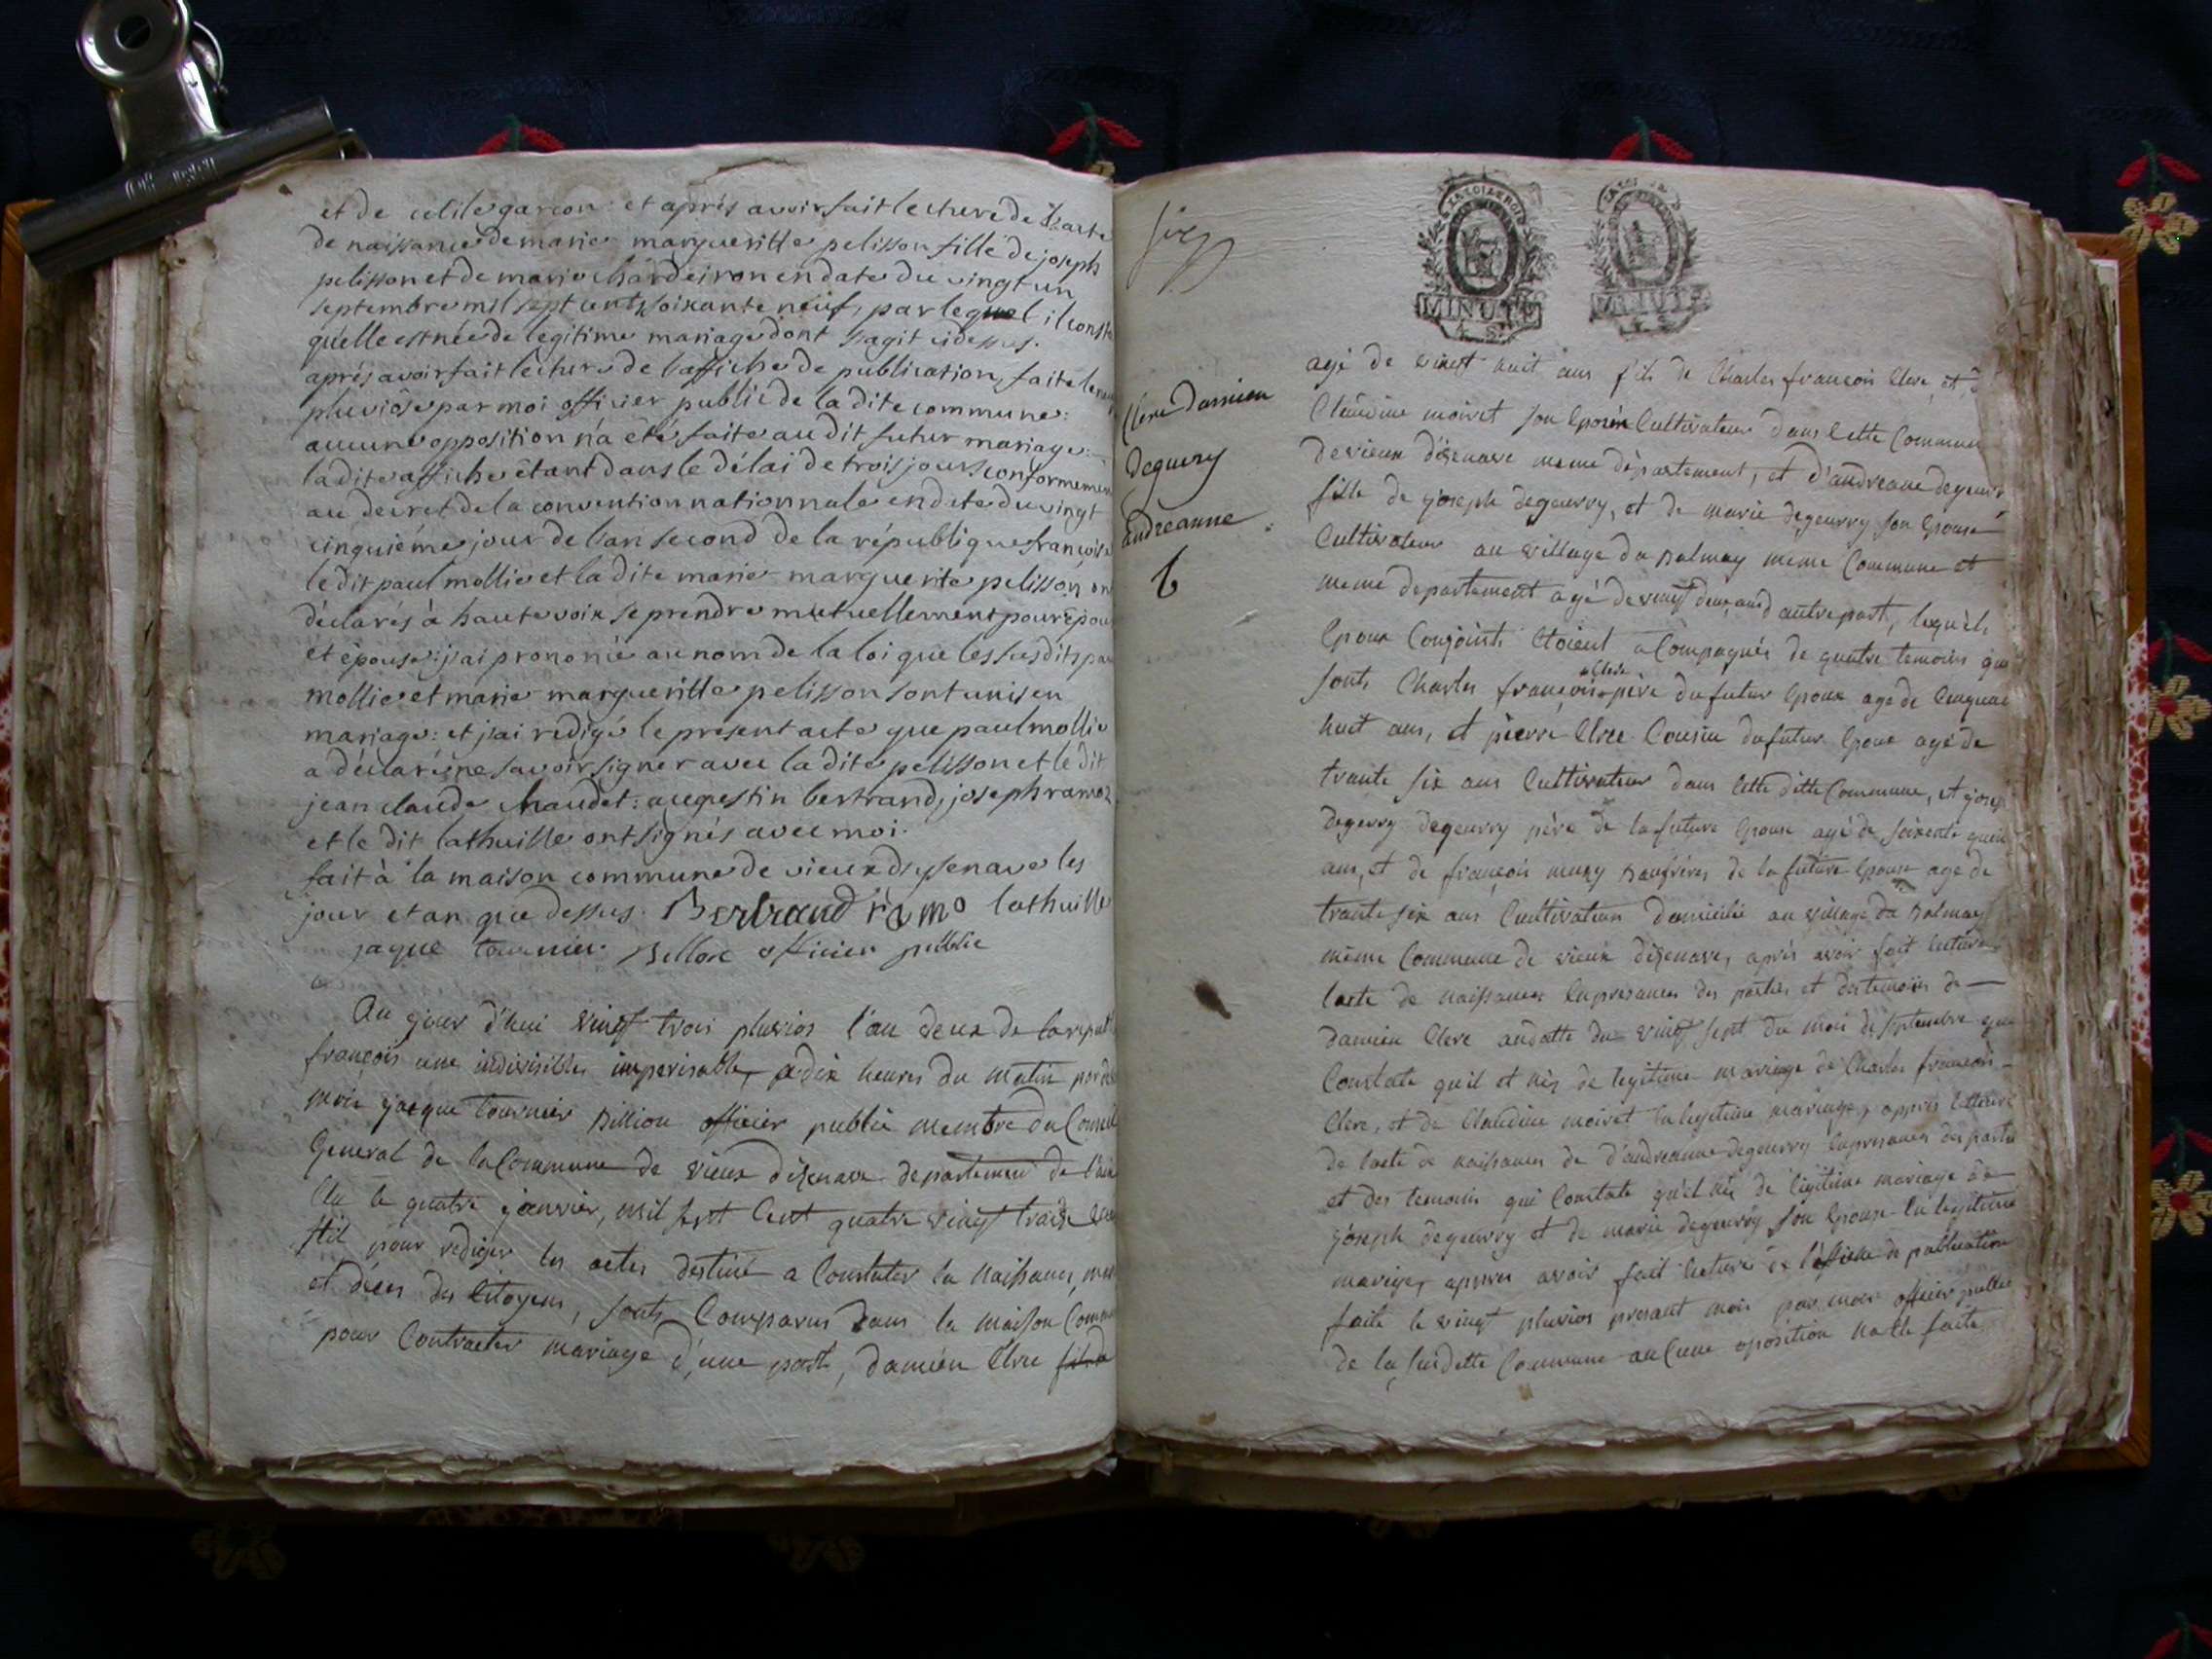 et de cecile garcon: et aprés avoir fait lecture de l'acte
de naissance de marie margueritte pelisson fille de joseph
pelisson et de marie chardeiron en date du vingt un
septembre mil sept cents soixante neuf, par lequel il const
qu'elle est née de legitime mariage dont s'agit ci dessus.
aprés avoir fait lecture de l'affiche de publication, faite le
pluviose par moi officier public de la dite commune:
aucune opposition n'a été faite au dit futur mariage:
la dite affiche étant dans le délai de trois jours conformement
au decret de la convention nationnale en date du vingt
cinquiéme jour de l'an second de la république françoise
le dit paul mollie et la dite marie marguerite pelisson, on
déclarés à haute voix se prendre mutuellement pour épou
et épouse: j'ai prononcé au nom de la loi que les susdits pau
mollie et marie margueritte pelisson sont unis en
mariage: et j'ai redigé le present acte que paul mollie
a déclaré ne savoir signer avec la dite pelisson et le dit
jean claude chaudet: augustin bertrand, joseph ramoz
et le dit lathuille ont signés avec moi.
fait à la maison commune de vieux d'isenave les
jour et an que dessus. Bertrand ramo lathuille
jaque tournier officier publie
Au jour d'hui vingt trois pluvios l'an deux de la republ
françois une indivisibles imperisable, a dix heures du matin par de
moi jacque tournier Billion officier public membre du Conseil
General de la Commune de vieux d'izenave departement de l'ain
Elu le quatre janvier, mil sept Cent quatre vingt traize
stil pour rediger les actes destiné a Constater la Naissances, mar
et déces des Citoyens, sonts Comparus dans la maison Comm
pour Contracter mariage d'une part, damien Clerc fils
MINUTE
4. S.
MINUTE
4 S.
Clerc Damien
Deguery
andreanne
6
agé de vingt huit ans fils de Charles françois Clerc, et d
Claudine moiret son Epouse Cultivateur dans Cette Commune
de vieux d'izenave meme département, et d'andreane degeurr
fille de joseph degeurry, et de marie degeurry son Epouse
Cultivateur au village du Balmay meme Commune et
meme departement agé de vingt deux ans d'autre part, lequels
Epoux Conjoints Etoient aCompagnés de quatre temoins qui
sonts Charles françois Clerc père du futur Epoux age de Cinquante
huit ans, et pierre Clerc Cousin du futur Epoux agé de
trante six ans Cultivateur dans Cette ditte Commune, et josep
degeurry degeurry père de la future Epouse agé de soixente
ans, et de françois muzy Baufrères de la future Epouse agé de
trante six ans Cultivateur domicilié au village du Balmay
même Commune de vieux dizenave, aprés avoir fait lecture
lacte de Naissances Enpresances des parties et des temoins de —
damien Clerc andatte du vingt sept du mois de septembre que
Constate qu'il et née de legitime mariage de Charles françois
Clerc, et de Claudine moiret la legitime mariage, apprés lecture
de lacte de naissances de d'andreanne degeurry Enpresances des partie
et des temoins qui Constate qu'el née de légitime mariage de
joseph degeurry et de marie degeurry son Epouse En legitime
mariages, appres avoir fait lecture de l'afiche de publication
faite le vingt pluvios presant mois par moi officier public
de la susditte Commune auCune oposition na Ete faite